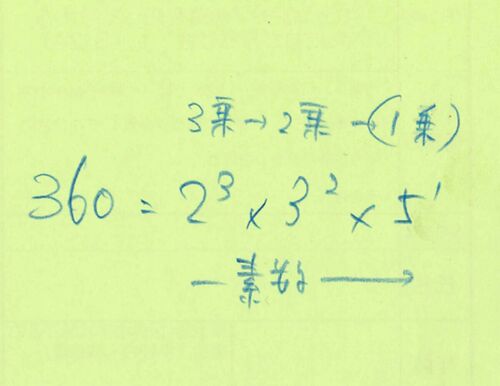 3乗→2乗→(1乗)
360 = 2³ × 3² × 5¹
—素数→